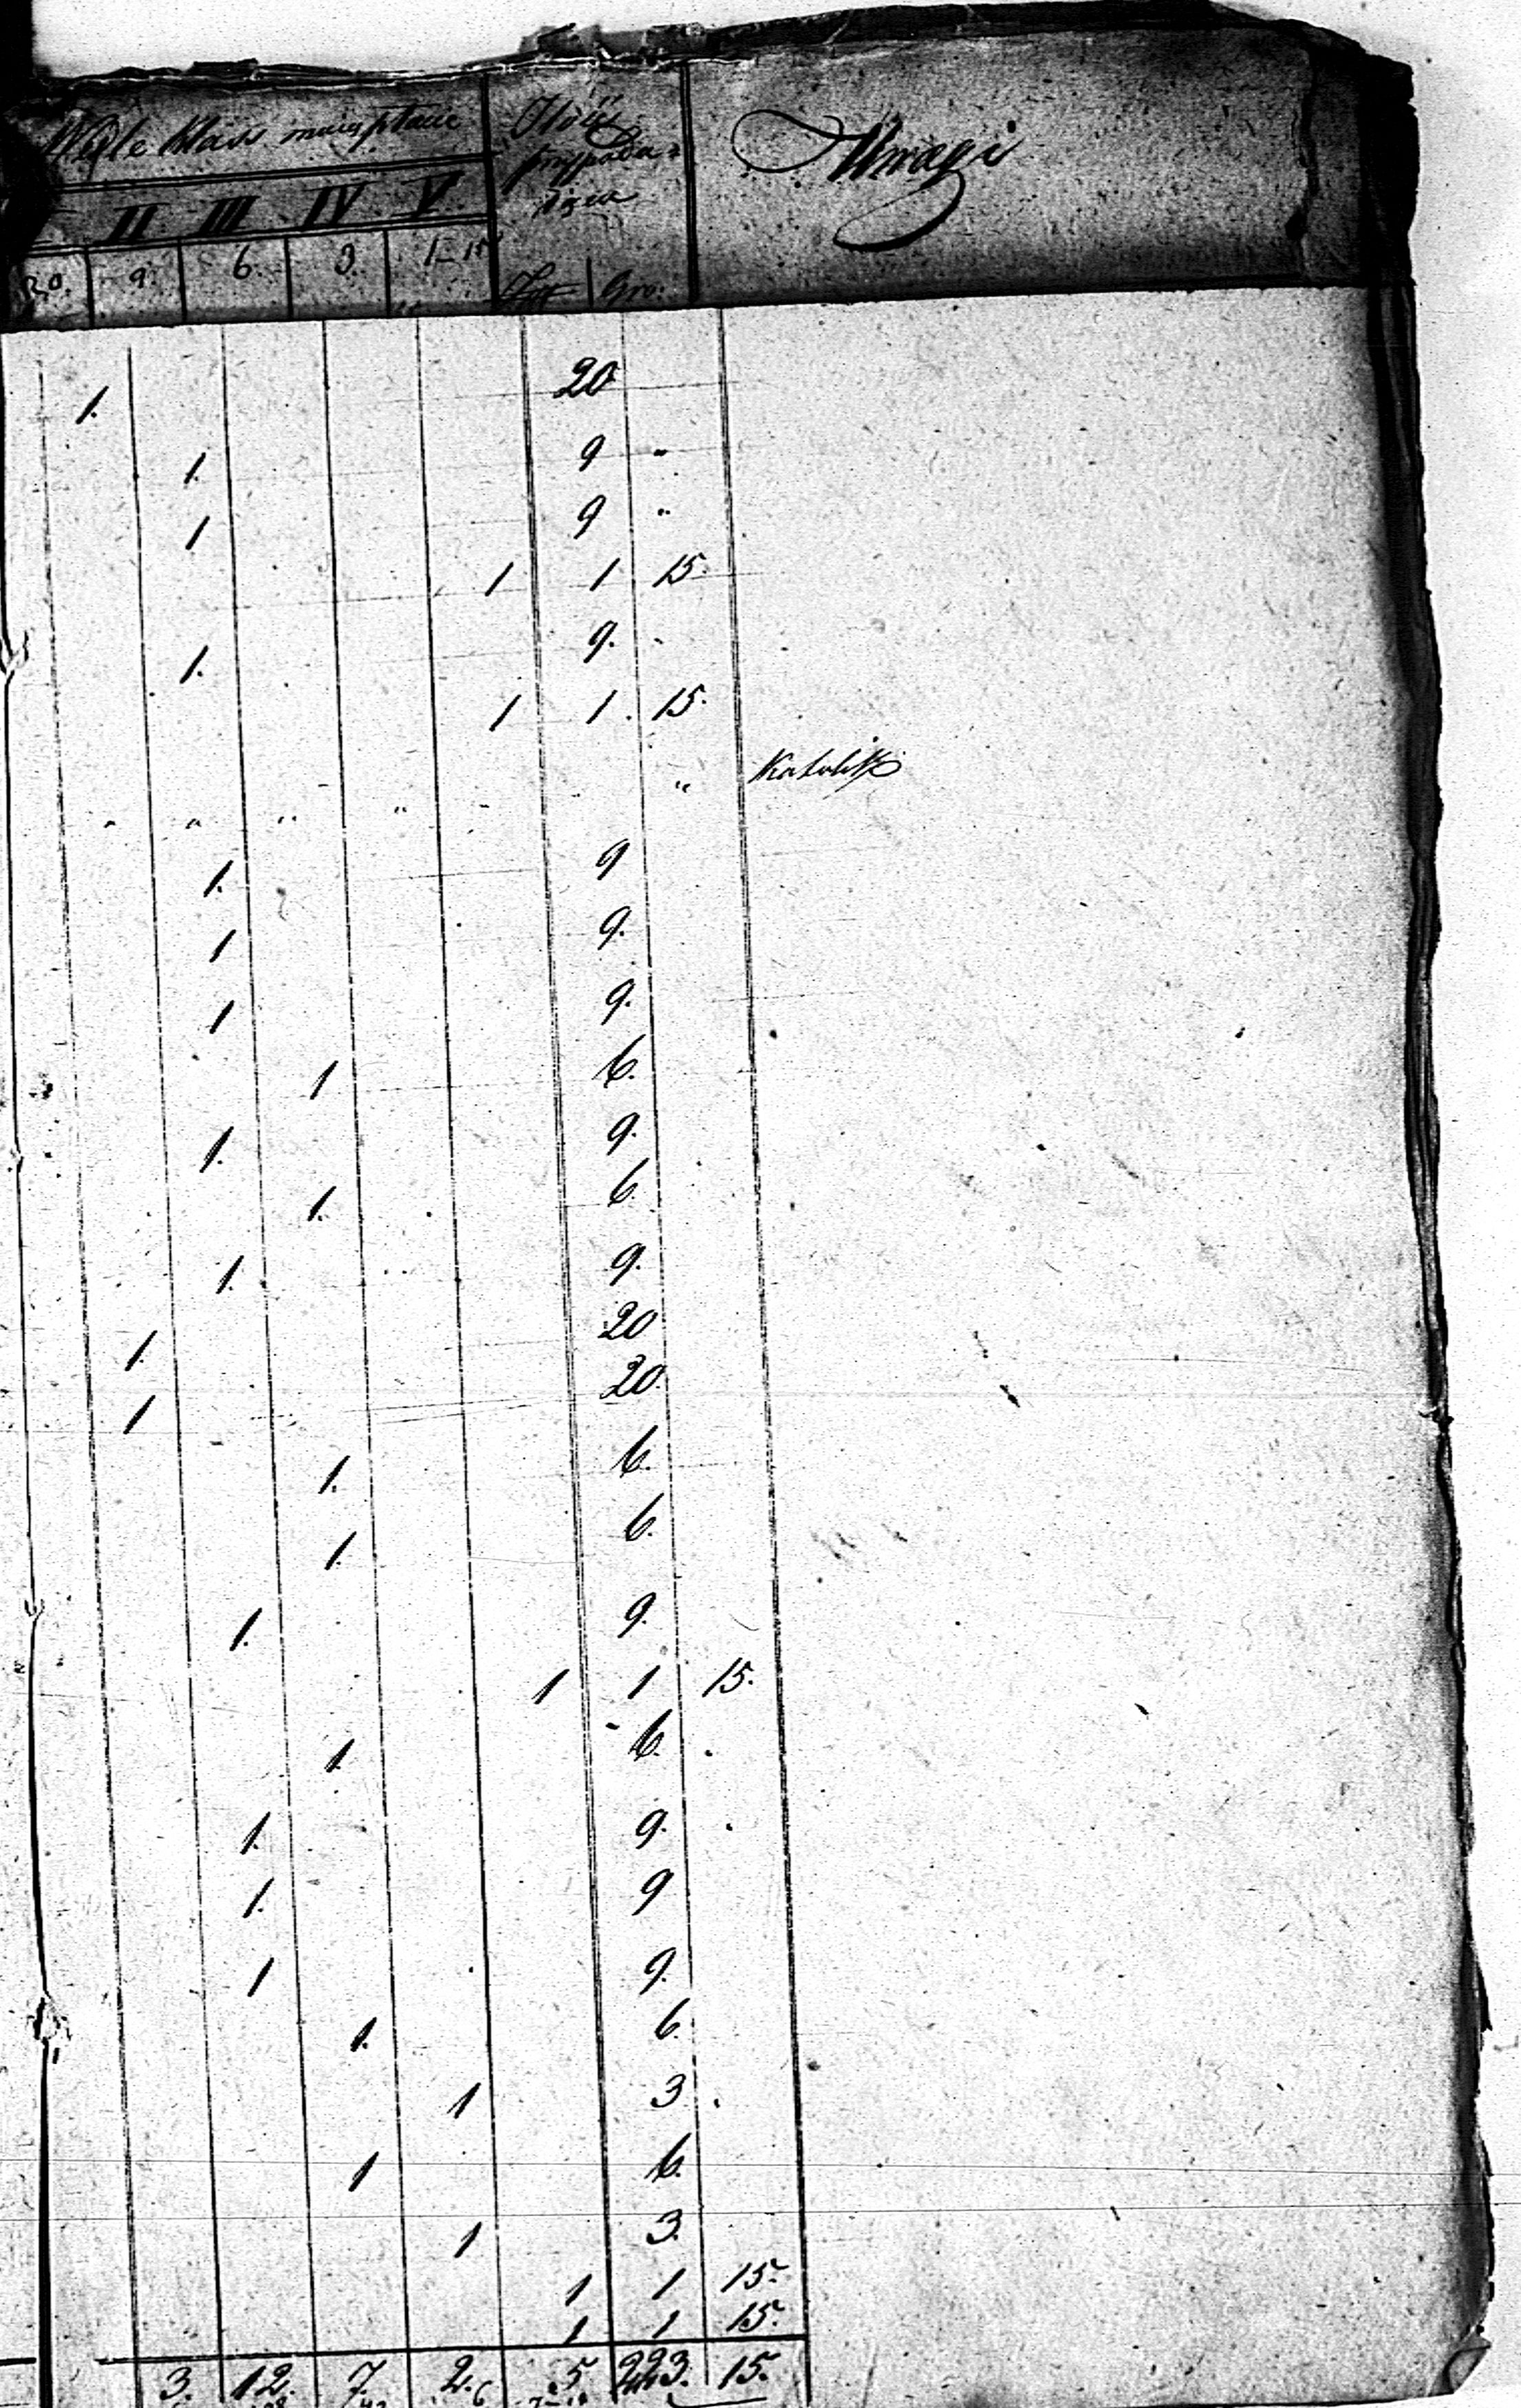 Wedle klass mająptacic
Ilość
przypada-
jąca
Uwagi
II III IV V
20. 9. 6. 3. 1-15
Złt Gro:
1. 20
1. 9 "
1 9 "
1 1 15.
1. 9. "
1 1. 15.
" " " " " Katolik
1. 9
1 9.
1 9.
1 6.
1. 9.
1. 6.
1. 9.
1. 20
1 20.
1. 6.
1. 6.
1. 9.
1 1 15.
1. 6.
1. 9.
1. 9
1 9.
1. 6.
1 3
1 6.
1 3.
1 1 15.
1 1 15.
3. 12. 7. 2. 5 223. 15.